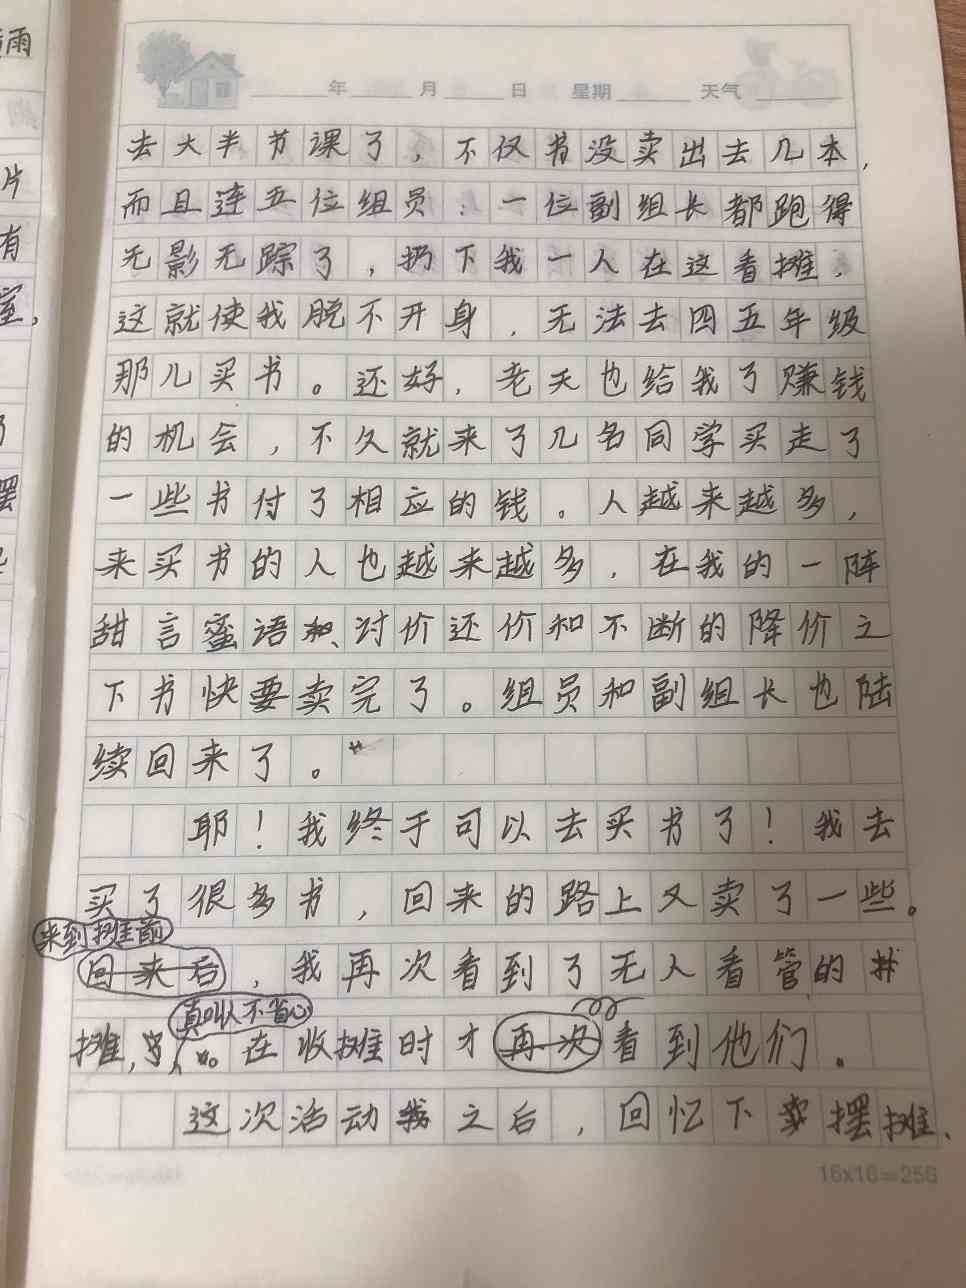 雨
片
有
室，
摆
年 月 日 星期 天气
去大半节课了，不仅书没卖出去几本，
而且连五位组员、一位副组长都跑得
无影无踪了，扔下我一人在这看摊，
这就使我脱不开身，无法去四五年级
那儿买书。还好，老天也给我了赚钱
的机会，不久就来了几名同学买走了
一些书付了相应的钱。人越来越多，
来买书的人也越来越多，在我的一阵
甜言蜜语、讨价还价和不断的降价之
下书快要卖完了。组员和副组长也陆
续回来了。
耶！我终于可以去买书了！我去
买了很多书，回来的路上又卖了一些。
来到摊前
回来后，我再次看到了无人看管的
真叫人不省心
摊，。在收摊时才再次看到他们。
这次活动我之后，回忆下卖摆摊、
16x16=256